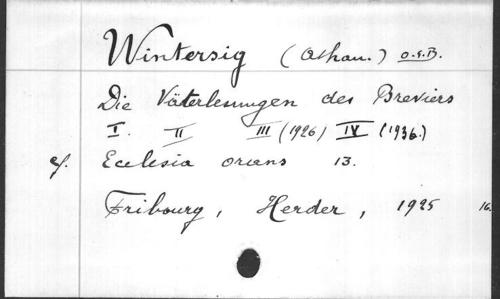 Wintersig (Athan.) O.S.B.
Die Väterlesungen des Breviers
I. II III (1926) IV (1936.)
cf. Ecclesia orans 13.
Fribourg, Herder, 1925 16.